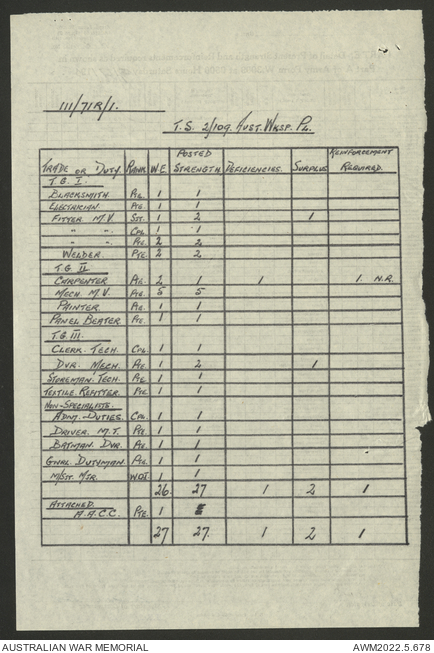 111/71R/1.
T.S. 2/109. AUST. WKSP. PL.
TRADE OR DUTY. RANK W.E. POSTED STRENGTH. DEFICIENCIES. SURPLUS REINFORCEMENT REQUIRED.
T.G. I.
BLACKSMITH. PTE. 1 1
ELECTRICIAN. PTE. 1 1
FITTER. M.V. SGT. 1 2 1
" " CPL 1 1
" " PTE 2 2
WELDER. PTE. 2 2
T.G. II
CARPENTER PTE. 2 1 1 1. N.R.
MECH. M.V. PTE. 5 5
PAINTER PTE. 1 1
PANEL BEATER. PTE. 1 1
T.G. III.
CLERK. TECH. CPL. 1 1
DVR. MECH. PTE. 1 2 1
STOREMAN. TECH. PTE. 1 1
TEXTILE. REFITTER. PTE. 1 1
NON-SPECIALISTS.
ADMN.-DUTIES. CPL. 1 1
DRIVER. M.T. PTE 1 1
BATMAN. DVR. PTE. 1 1
GNRL. DUTYMAN. PTE. 1 1
WOI. 1 1
26. 27 1 2 1
ATTACHED.
A.A.C.C. PTE. 1
27 27. 1 2 1
AUSTRALIAN WAR MEMORIAL
AWM2022.5.678